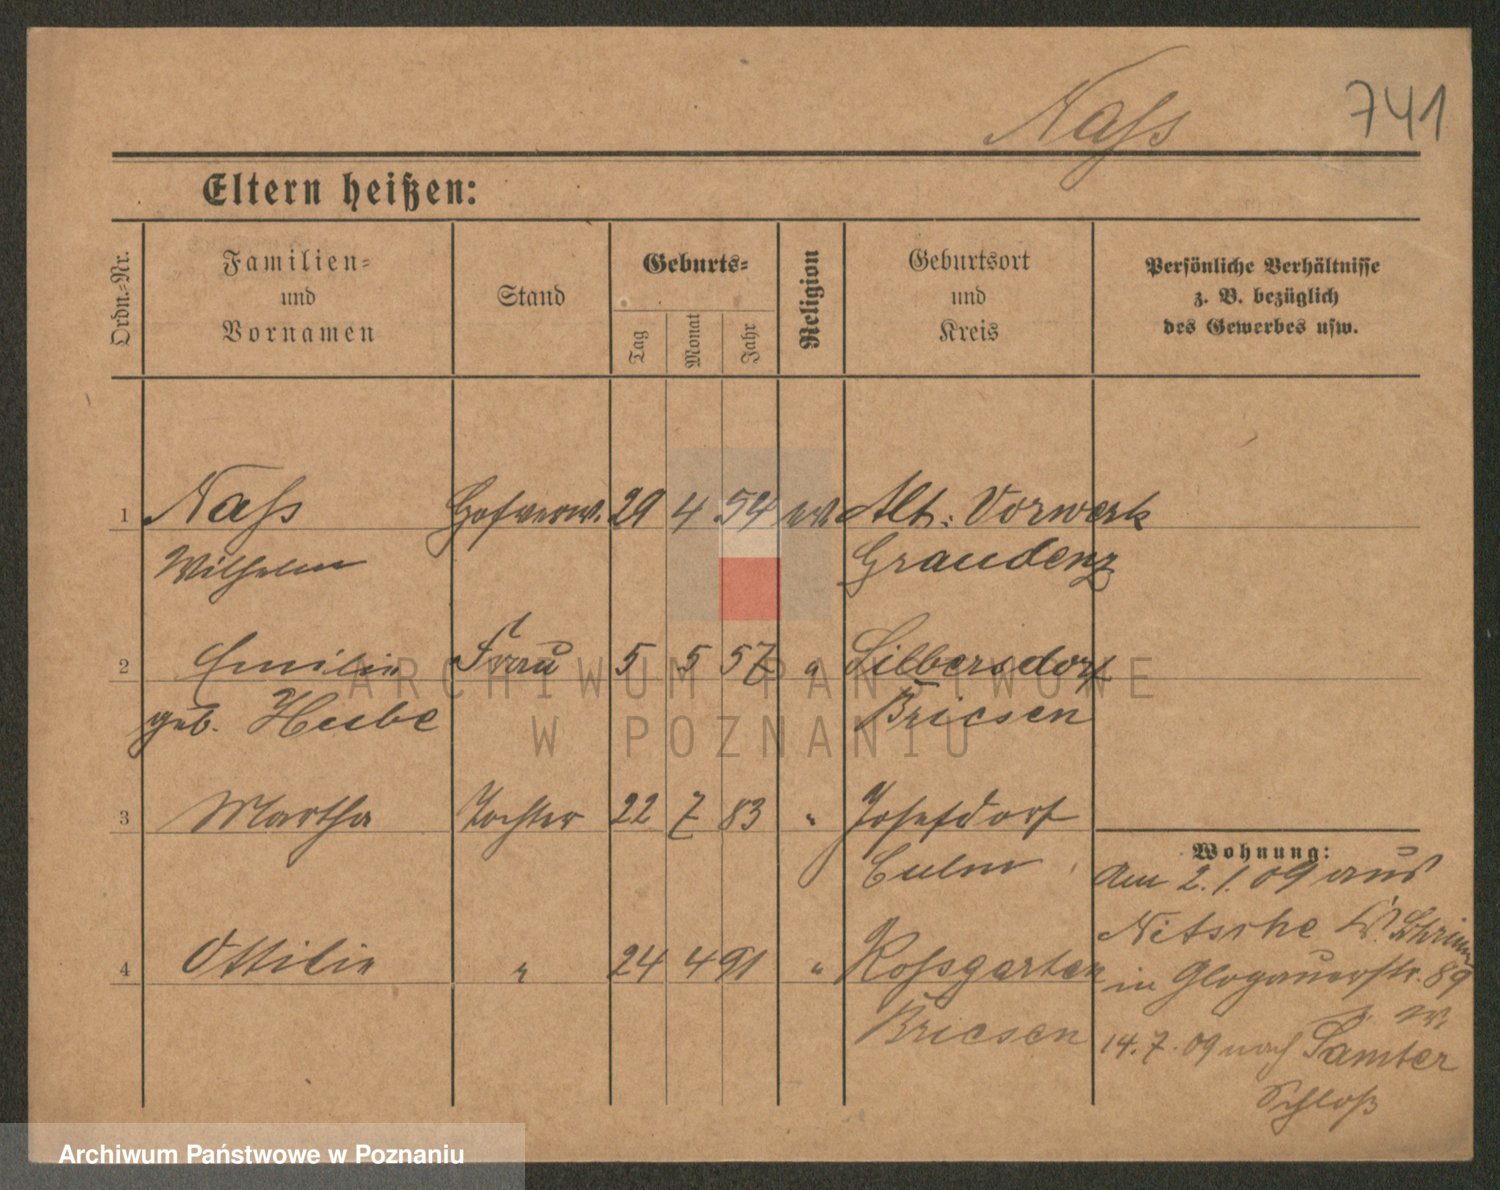 Naſs 741
Eltern heißen:
Ordn.-Nr.
Familien-
und
Vornamen
Stand
Geburts-
Tag
Monat
Jahr
Religion
Geburtsort
und
Kreis
Persönliche Verhältnisse
z. B. bezüglich
des Gewerbes usw.
1 Naſs Hofverw. 29 4 54 ev. Alt. Vorwerk
Wilhelm Graudenz
2 Emilie Frau 5 5 57 " Silbersdorf
geb. Heibe Briesen
3 Martha Tochter 22 7 83 " Josefdorf
Culm
Wohnung:
Am 2.1.09 aus
Nitsche Schrimm
4 Ottilie " 24 4 91 " Roſsgarten
in Glogauerstr. 89
Briesen
14.7.09 nach Samter
Schloß
ARCHIWUM PAŃSTWOWE
W POZNANIU
Archiwum Państwowe w Poznaniu